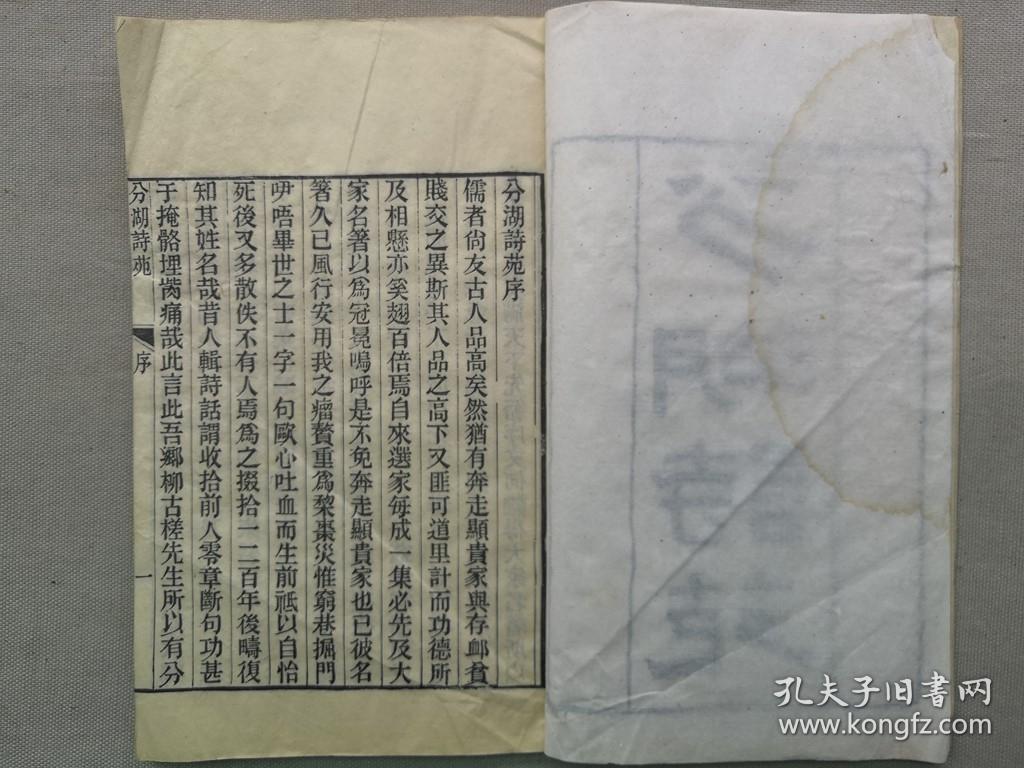 分湖詩苑序
儒者尙友古人品高矣然猶有奔走顯貴家與存䘏貧
賤交之異斯其人品之高下又匪可道里計而功德所
及相懸亦奚翅百倍焉自來選家每成一集必先及大
家名箸以爲冠冕嗚呼是不免奔走顯貴家也已彼名
箸久已風行安用我之瘤贅重爲棃棗災惟窮巷掘門
吚唔畢世之士一字一句歐心吐血而生前祗以自怡
死後又多散佚不有人焉爲之掇拾一二百年後疇復
知其姓名哉昔人輯詩話謂收拾前人零章斷句功甚
于掩骼埋胔痛哉此言此吾鄉柳古槎先生所以有分
分湖詩苑 序 一
分湖詩苑
孔夫子旧书网
www.kongfz.com